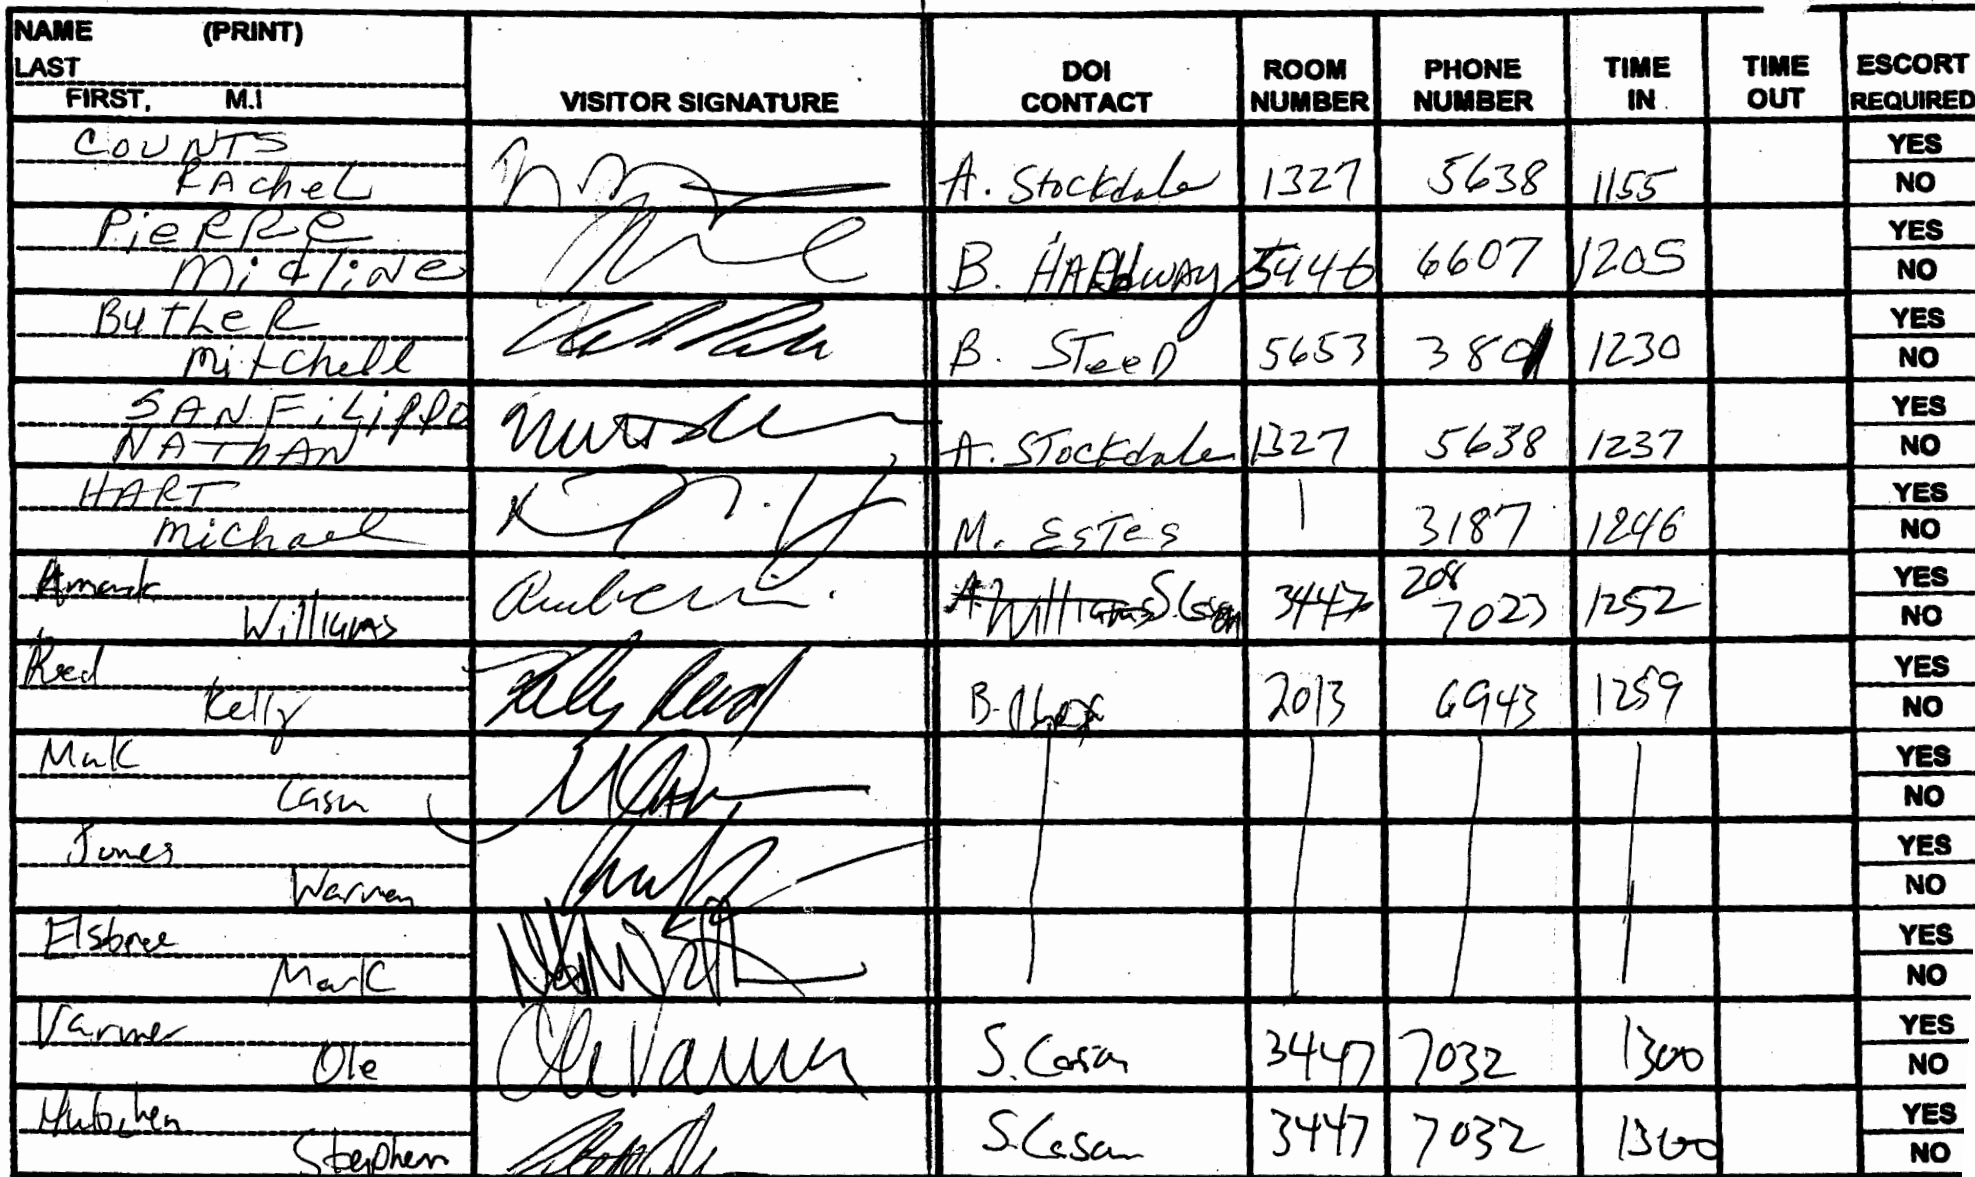 NAME (PRINT)
LAST
FIRST, M.I
VISITOR SIGNATURE
DOI CONTACT
ROOM NUMBER
PHONE NUMBER
TIME IN
TIME OUT
ESCORT REQUIRED
COUNTS
RAcheL A. Stockdale 1327 5638 1155
YES
NO
PieRRe
B. 6607 1205
YES
NO
ButLeR
Mitchell B. STeeD 5653 1230
YES
NO
SANFiLippo
NAThAN A. STockdale 1327 5638 1237
YES
NO
HART
Michael M. ESTes 3187 1246
YES
NO
Williams 3447 208 7023 1252
YES
NO
Kelly Kelly B. 2013 6943 1259
YES
NO
YES
NO
Jones
Warren
YES
NO
Elsbree
Mark
YES
NO
Varmer
Ole Ole Varmer S. Casan 3447 7032 1300
YES
NO
Stephen S. Casan 3447 7032 1300
YES
NO